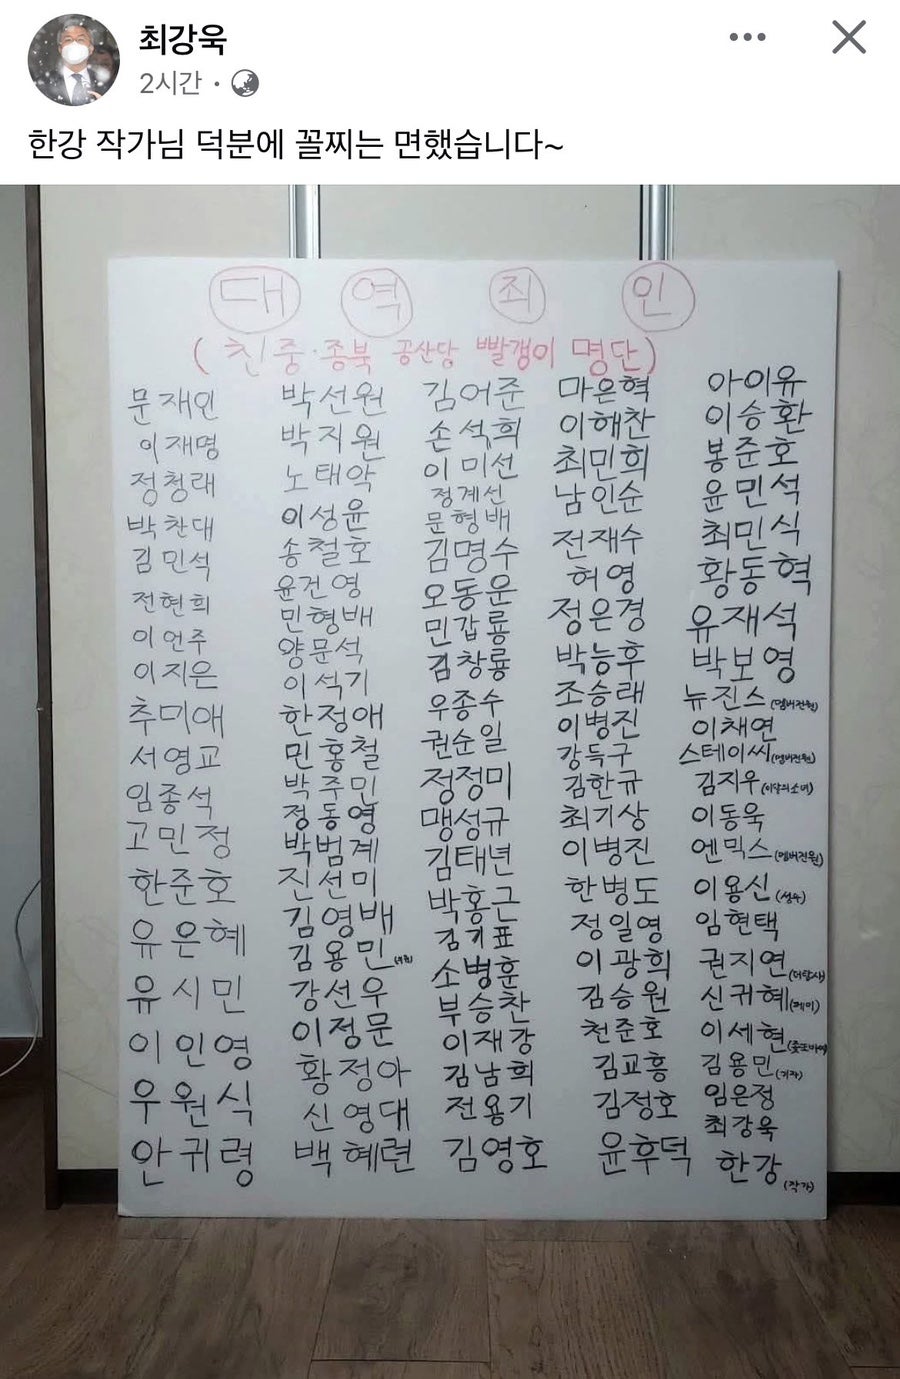 최강욱
2시간 ·
한강 작가님 덕분에 꼴찌는 면했습니다~
대 역 죄 인
(친중·종북 공산당 빨갱이 명단)
문재인
이재명
정청래
박찬대
김민석
전현희
이언주
이지은
추미애
서영교
임종석
고민정
한준호
유은혜
유시민
이인영
우원식
안귀령
박선원
박지원
노태악
이성윤
송철호
윤건영
민형배
양문석
이석기
한정애
민홍철
박주민
정동영
박범계
진선미
김영배
김용민
강선우
이정문
황정아
신영대
백혜련
김어준
손석희
이미선
정계선
문형배
김명수
오동운
민갑룡
김창룡
우종수
권순일
정정미
맹성규
김태년
박홍근
김기표
소병훈
부승찬
이재강
김남희
전용기
김영호
마은혁
이해찬
최민희
남인순
전재수
허영
정은경
박능후
조승래
이병진
강득구
김한규
최기상
이병진
한병도
정일영
이광희
김승원
천준호
김교흥
김정호
윤후덕
아이유
이승환
봉준호
윤민석
최민식
황동혁
유재석
박보영
뉴진스(멤버전원)
이채연
스테이씨(멤버전원)
김지우(이달의소녀)
이동욱
엔믹스(멤버전원)
이용신(성우)
임현택
권지연(더탐사)
신귀혜
이세현
김용민(기자)
임은정
최강욱
한강(작가)